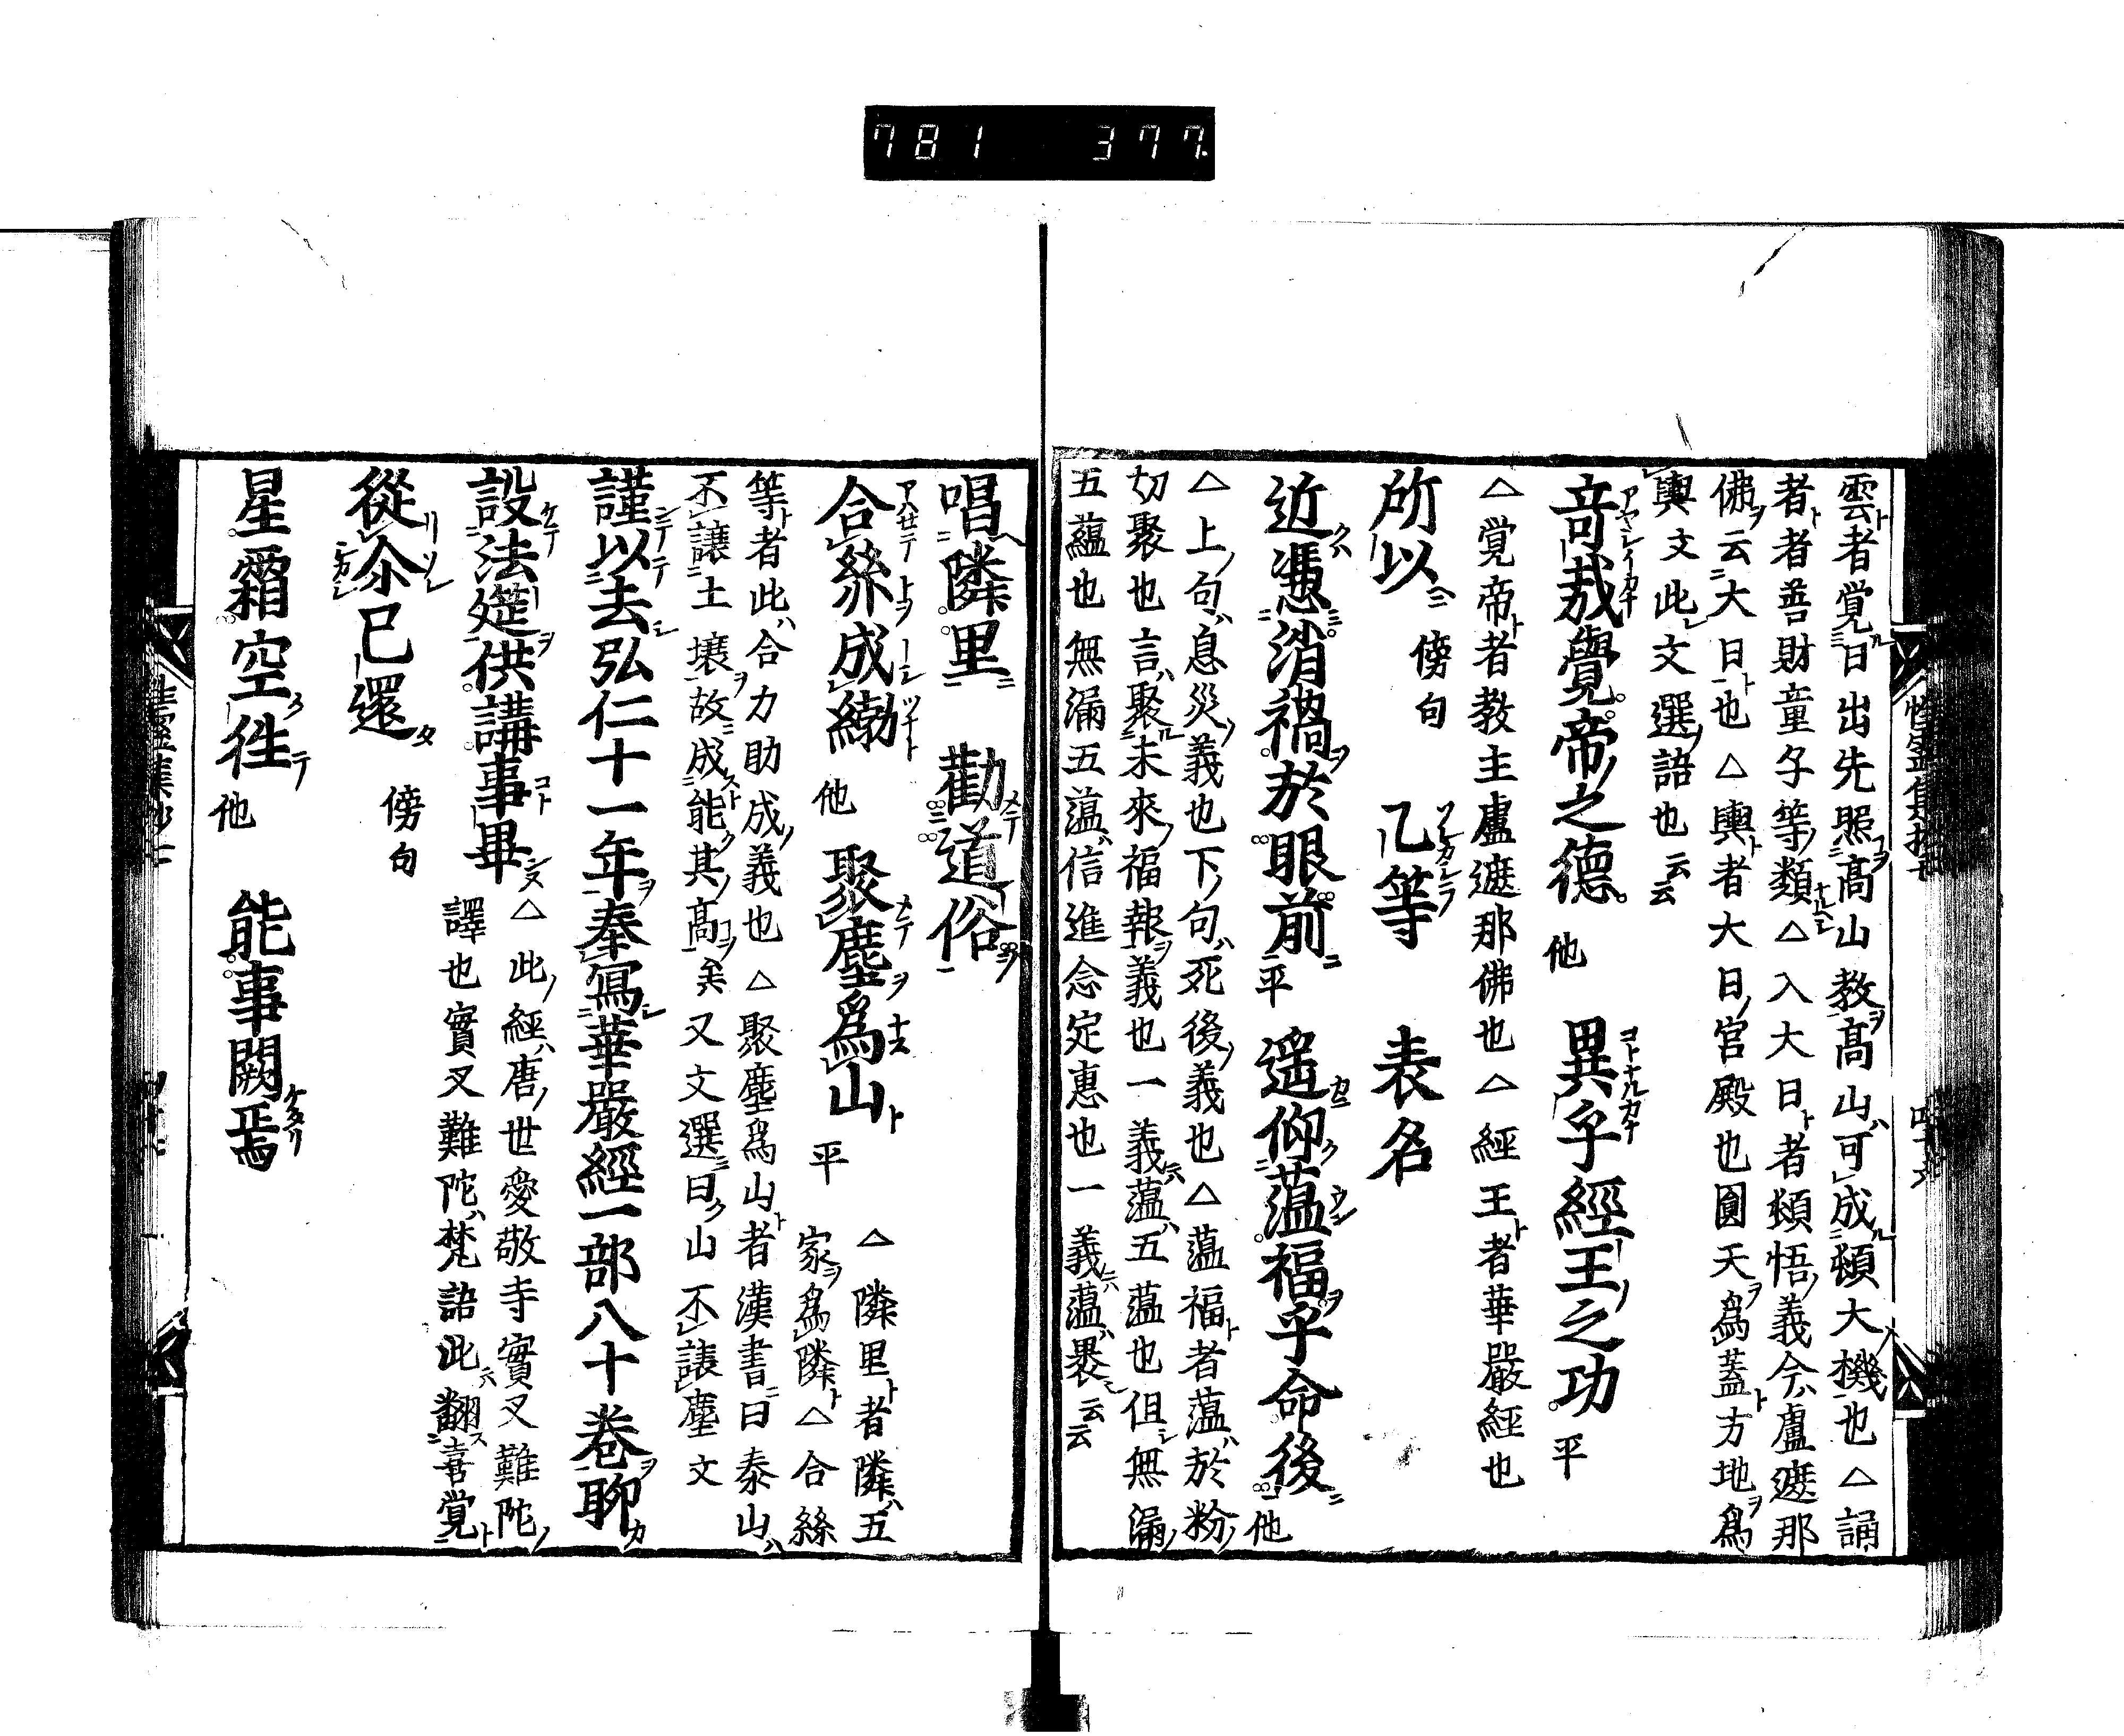 781 377
雲者覚日出先照髙山教髙山可成頓大機也△誦
者者善財童子等類△入大日者頓悟義今盧遮那
佛云大日也△輿者大日宮殿也圓天為蓋方地為
輿文此文選語也云云
竒哉覺帝之德 他 異乎經王之功 平
△覚帝者教主盧遮那佛也△經王者華嚴經也
所以 傍句 乙等 表名
近憑消禍於眼前 平 遥仰薀福乎命後 他
△上句息災義也下句死後義也△薀福者薀於粉
切聚也言聚未來福報義也一義薀五薀也但無漏
五蘊也無漏五薀信進念定惠也一義薀褁云云
唱隣里 勸道俗
△隣里者隣五
家為隣△合絲
合絲成緲 他 聚塵為山 平
等者此合力助成義也△聚塵為山者漢書曰泰山
不讓土壤故成能其髙矣又文選曰山不讓塵文
謹以去弘仁十一年奉寫華嚴經一部八十巻聊
設法筵供講事畢
△此經唐世愛敬寺實叉難陀
譯也實叉難陀梵語此翻喜覚
從尒已還 傍句
星霜空徃 他 能事闕焉